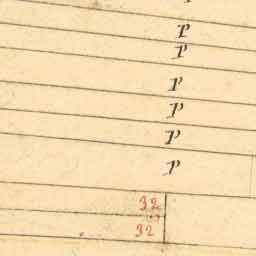 p
p
p
p
p
p
32
32